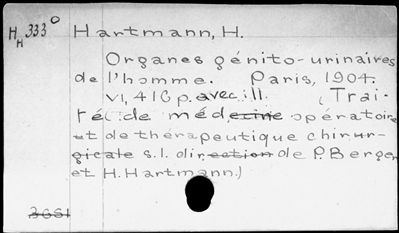 H H 333° Hartmann, H.
Organes génito-urinaires
de l'homme. Paris, 1904.
VI, 416 p. avec ill. (Trai-
té de médecine opératoire
et de thérapeutique chirur-
gicale s.l. direction de P. Berger
et H. Hartmann.)
3651